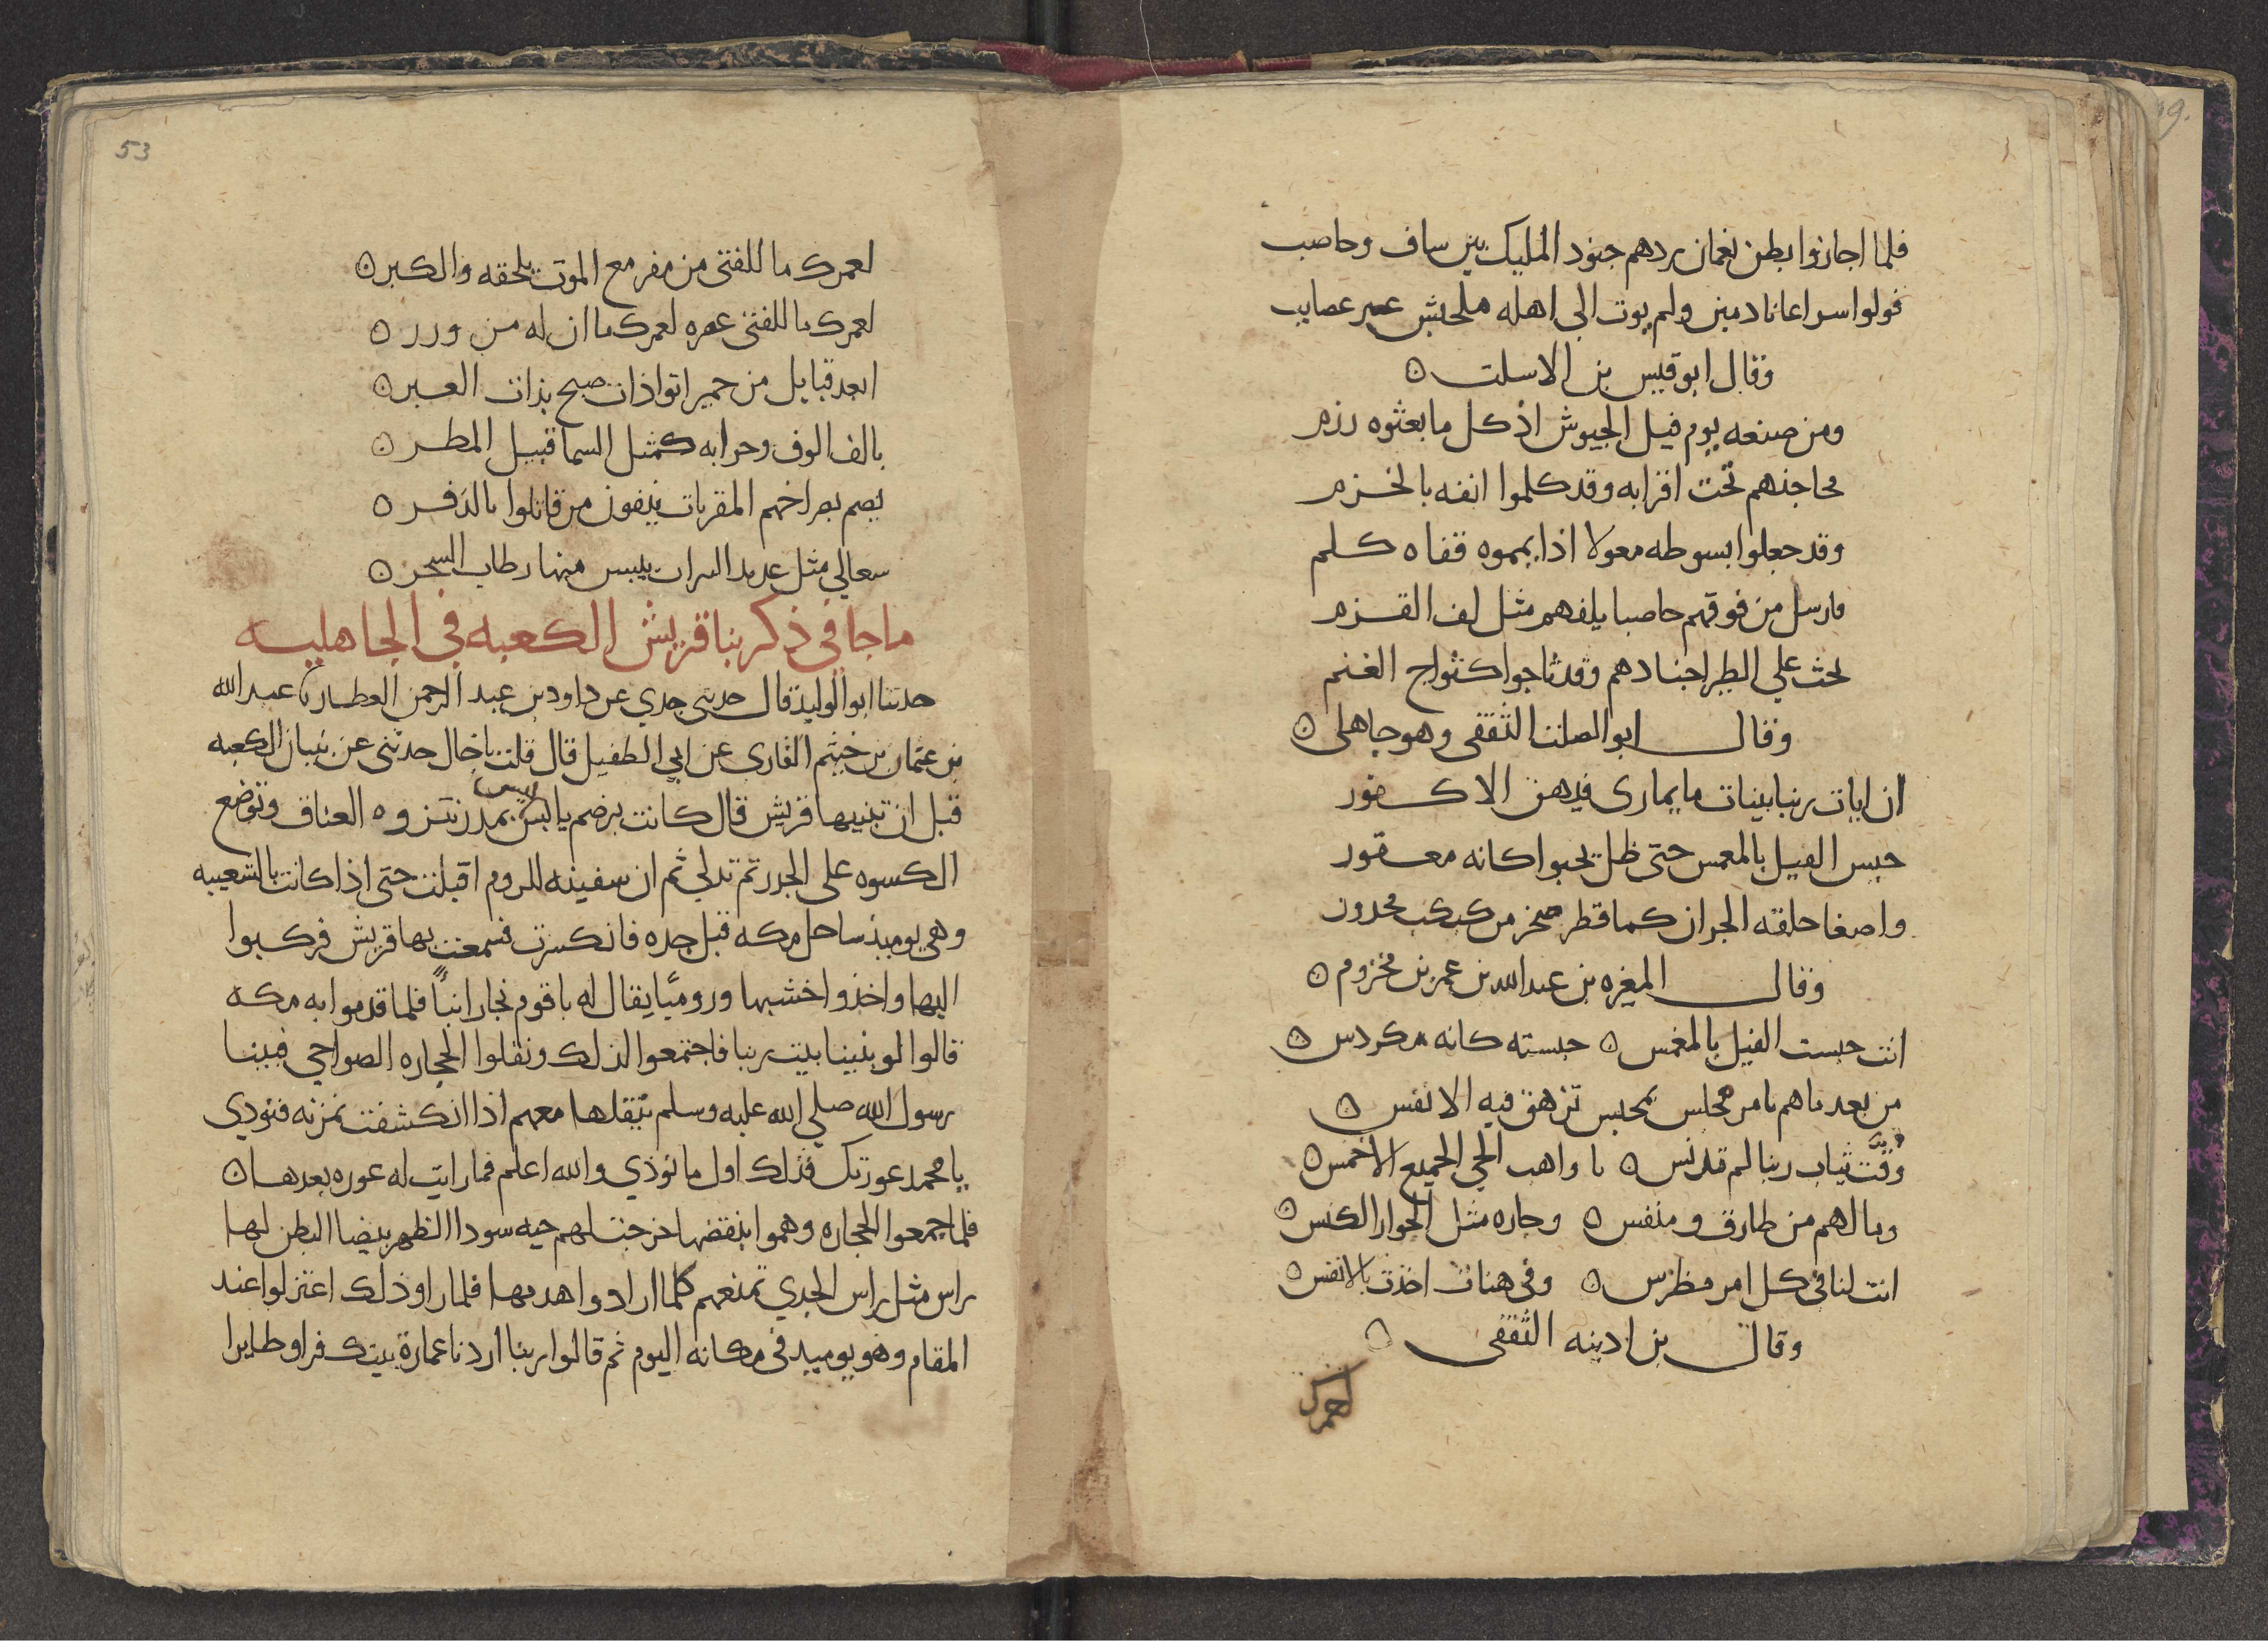 فلما اجازوا بطن نعمان ردهم جنود المليك بين ساف وحاصب
فولوا سراعا نادمين ولم يوت الى اهله ملحبش عير عصايب
وقال ابو قيس بن الاسلت ۞
ومن صنعه يوم فيل الجيوش اذ كل ما بعثوه رزم
محاجنهم تحت اقرابه وقد كلموا انفه بالخزم
وقد جعلوا سوطه معولا اذا يمموه قفاه كلم
فارسل من فوقهم حاصبا يلفهم مثل لف القزم
يحث علي الطير اجنادهم وقد ثاجوا كثواج الغنم
وقال ابو الصلت الثقفى وهو جاهلى ۞
ان ايات ربنا بينات ما يمارى فيهن الا كفور
حبس الفيل بالمغمس حتى ظل يحبوا كانه معقور
واصغا حلقه الجران كما قطر صخر من كبكب محدور
وقال المغيره بن عبد الله بن عمر بن مخزوم ۞
انت حبست الفيل بالمغمس ۞ حبسته كانه مكردس ۞
من بعد ما هم بامر مجلس بمحبس تزهق فيه الانفس ۞
وقت ثياب ربنا لم تدنس ۞ يا واهب الحي الجميع الاحمس ۞
وما لهم من طارق ومنفس ۞ وجاره مثل الجوار الكنس ۞
انت لنا فى كل امر مظرس ۞ وفى هنات اخذت بالانفس ۞
وقال بن ادينه الثقفى ۞
لعمرك
53
لعمرك ما للفتى من مفر مع الموت يلحقه والكبر ۞
لعمرك ما للفتى عصره لعمرك ما ان له من وزر ۞
ابعد قبايل من حمير اتوا ذات صبح بذات العبر ۞
بالف الوف وحرابه كمثل السما قبيل المطر ۞
يصم بصراخهم المقربات ينفون من قاتلوا بالذفر ۞
سعالي مثل عديد التراب ييبس منها رطاب الشجر ۞
ما جا فى ذكر بنا قريش الكعبه في الجاهليه
حدثنا ابو الوليد قال حدثني جدي عن داود بن عبد الرحمن العطار نا عبد الله
بن عثمان بن خيثم القاري عن ابي الطفيل قال قلت يا خال حدثنى عن بنيان الكعبه
قبل ان تبنيها قريش قال كانت برضم يابس ليس بمدر تنزوه العناق وتوضع
الكسوه على الجدر ثم تدلي ثم ان سفينه للروم اقبلت حتى اذا كانت بالشعيبه
وهى يوميذ ساحل مكه قبل جده فانكسرت فسمعت بها قريش فركبوا
اليها واخذوا خشبها وروميًا يقال له باقوم نجار انبأ فلما قدموا به مكه
قالوا لو بنينا بيت ربنا فاجتمعوا لذلك ونقلوا الحجاره الصواحي فبينا
رسول الله صلي الله عليه وسلم ينقلها معهم اذا انكشفت نمرته فنودي
يا محمد عورتك فذلك اول ما نوذي والله اعلم فما رايت له عوره بعدها ۞
فلما جمعوا الحجاره وهموا بنقضها خرجت لهم حيه سودا الظهر بيضا البطن لها
راس مثل راس الجدي تمنعهم كلما ارادوا هدمها فلما راوا ذلك اعتزلوا عند
المقام وهو يوميذ فى مكانه اليوم ثم قالوا ربنا اردنا عمارة بيتك فراوا طايرا